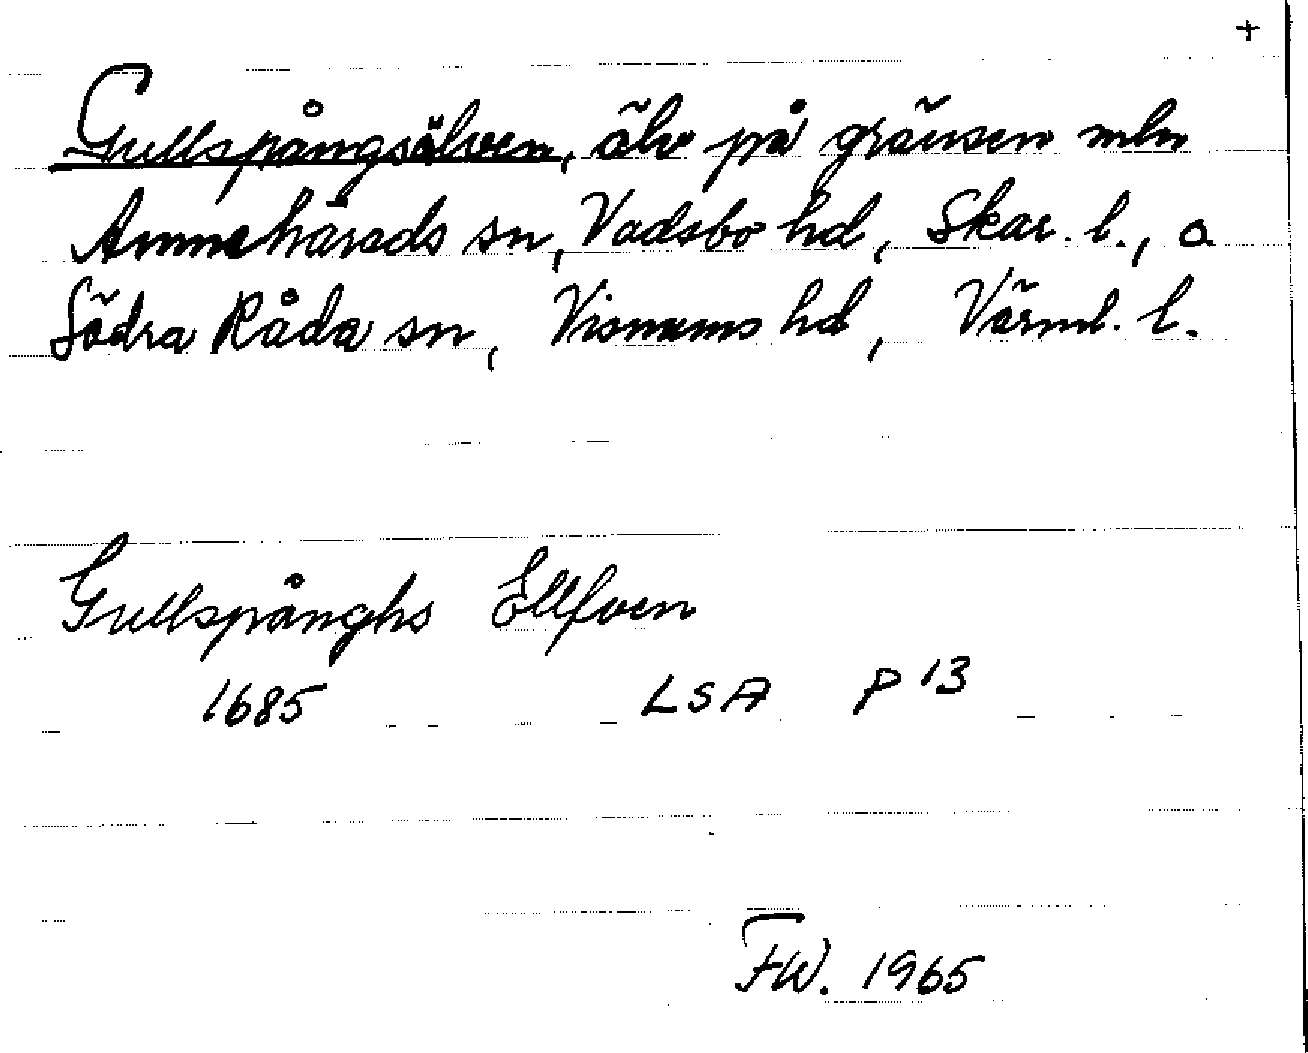 +
Gullspångsälven, älv på gränsen mln
Amnehärads sn, Vadsbo hd, Skar. l., o
Södra Råda sn, Visnums hd, Värml. l.
Gullspånghs Ellfven
1685 LSA P 13
FW. 1965